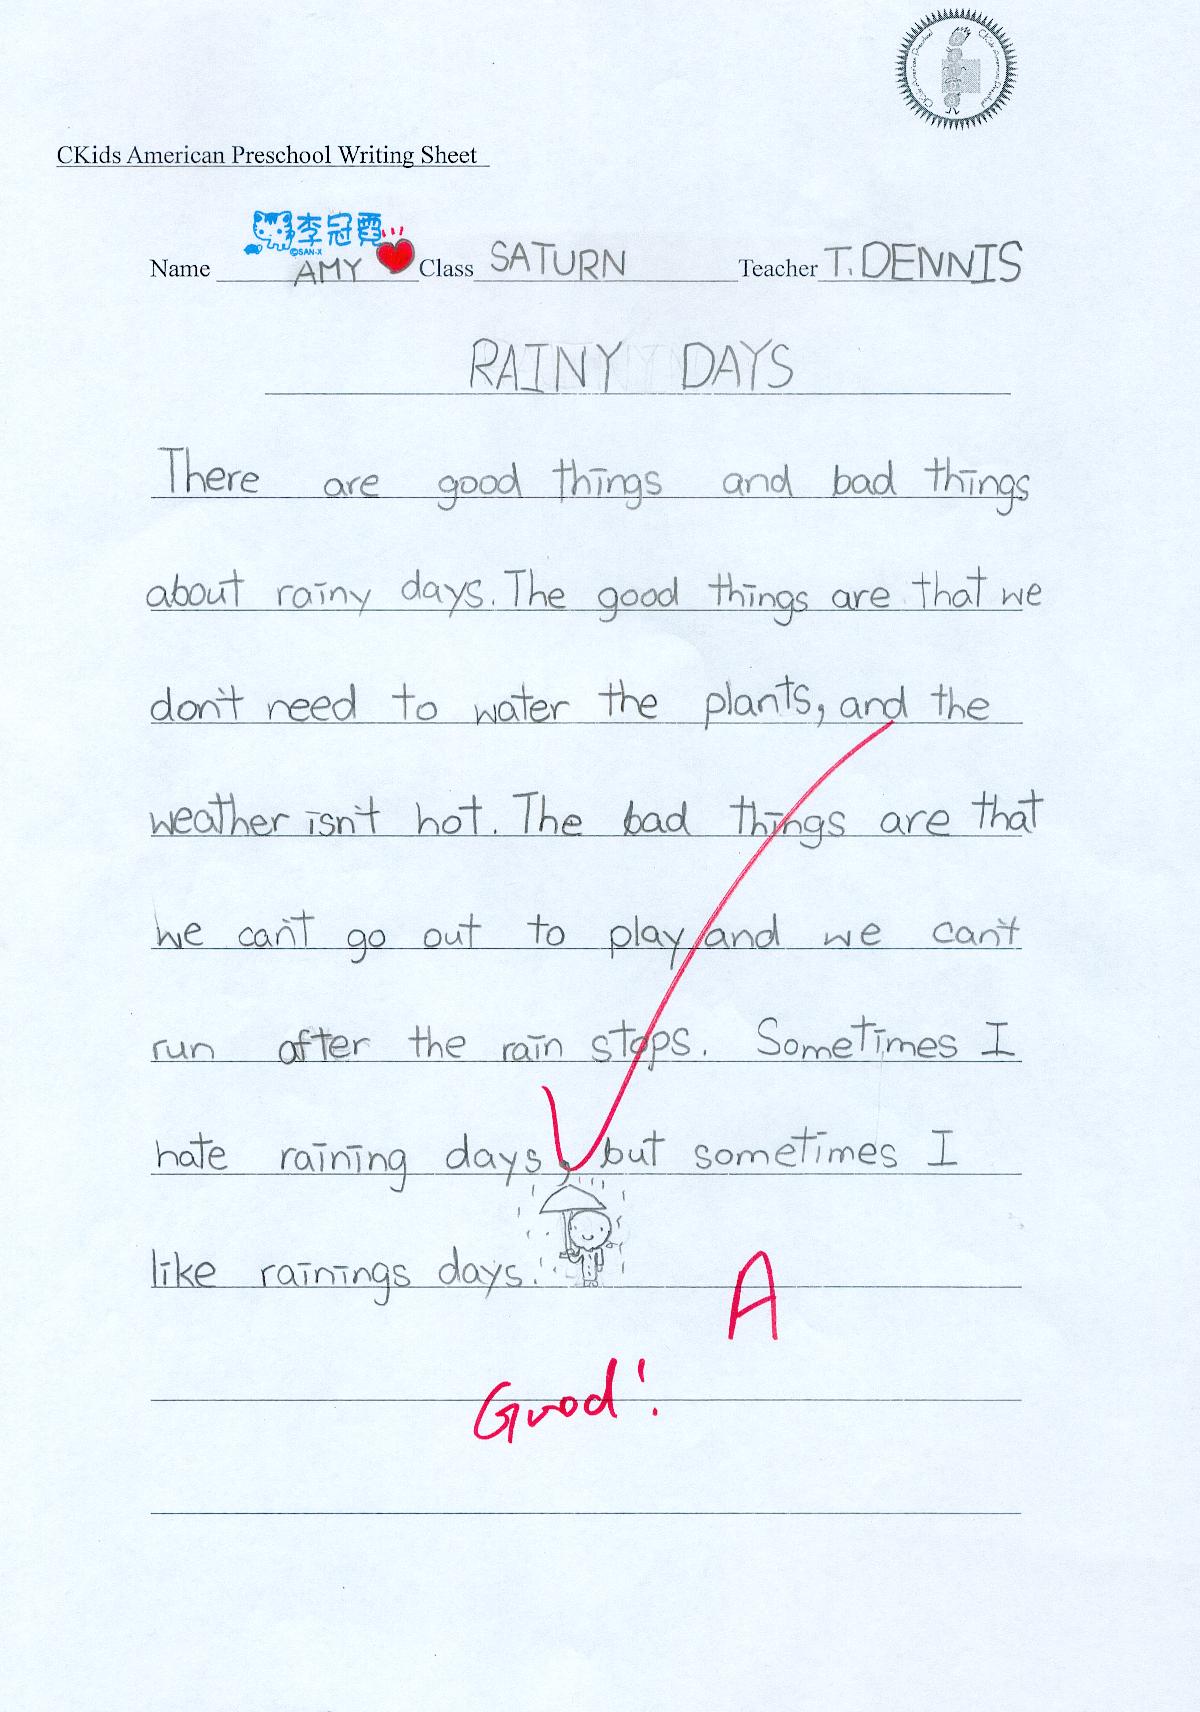 CKids American Preschool
CKids American Preschool
CKids American Preschool Writing Sheet
李冠霞
©SAN-X
Name AMY Class SATURN Teacher T. DENNIS
RAINY DAYS
There are good things and bad things
about rainy days. The good things are that we
don't need to water the plants, and the
weather isn't hot. The bad things are that
we can't go out to play and we can't
run after the rain stops. Sometimes I
hate raining days, but sometimes I
like rainings days.
A
Good!